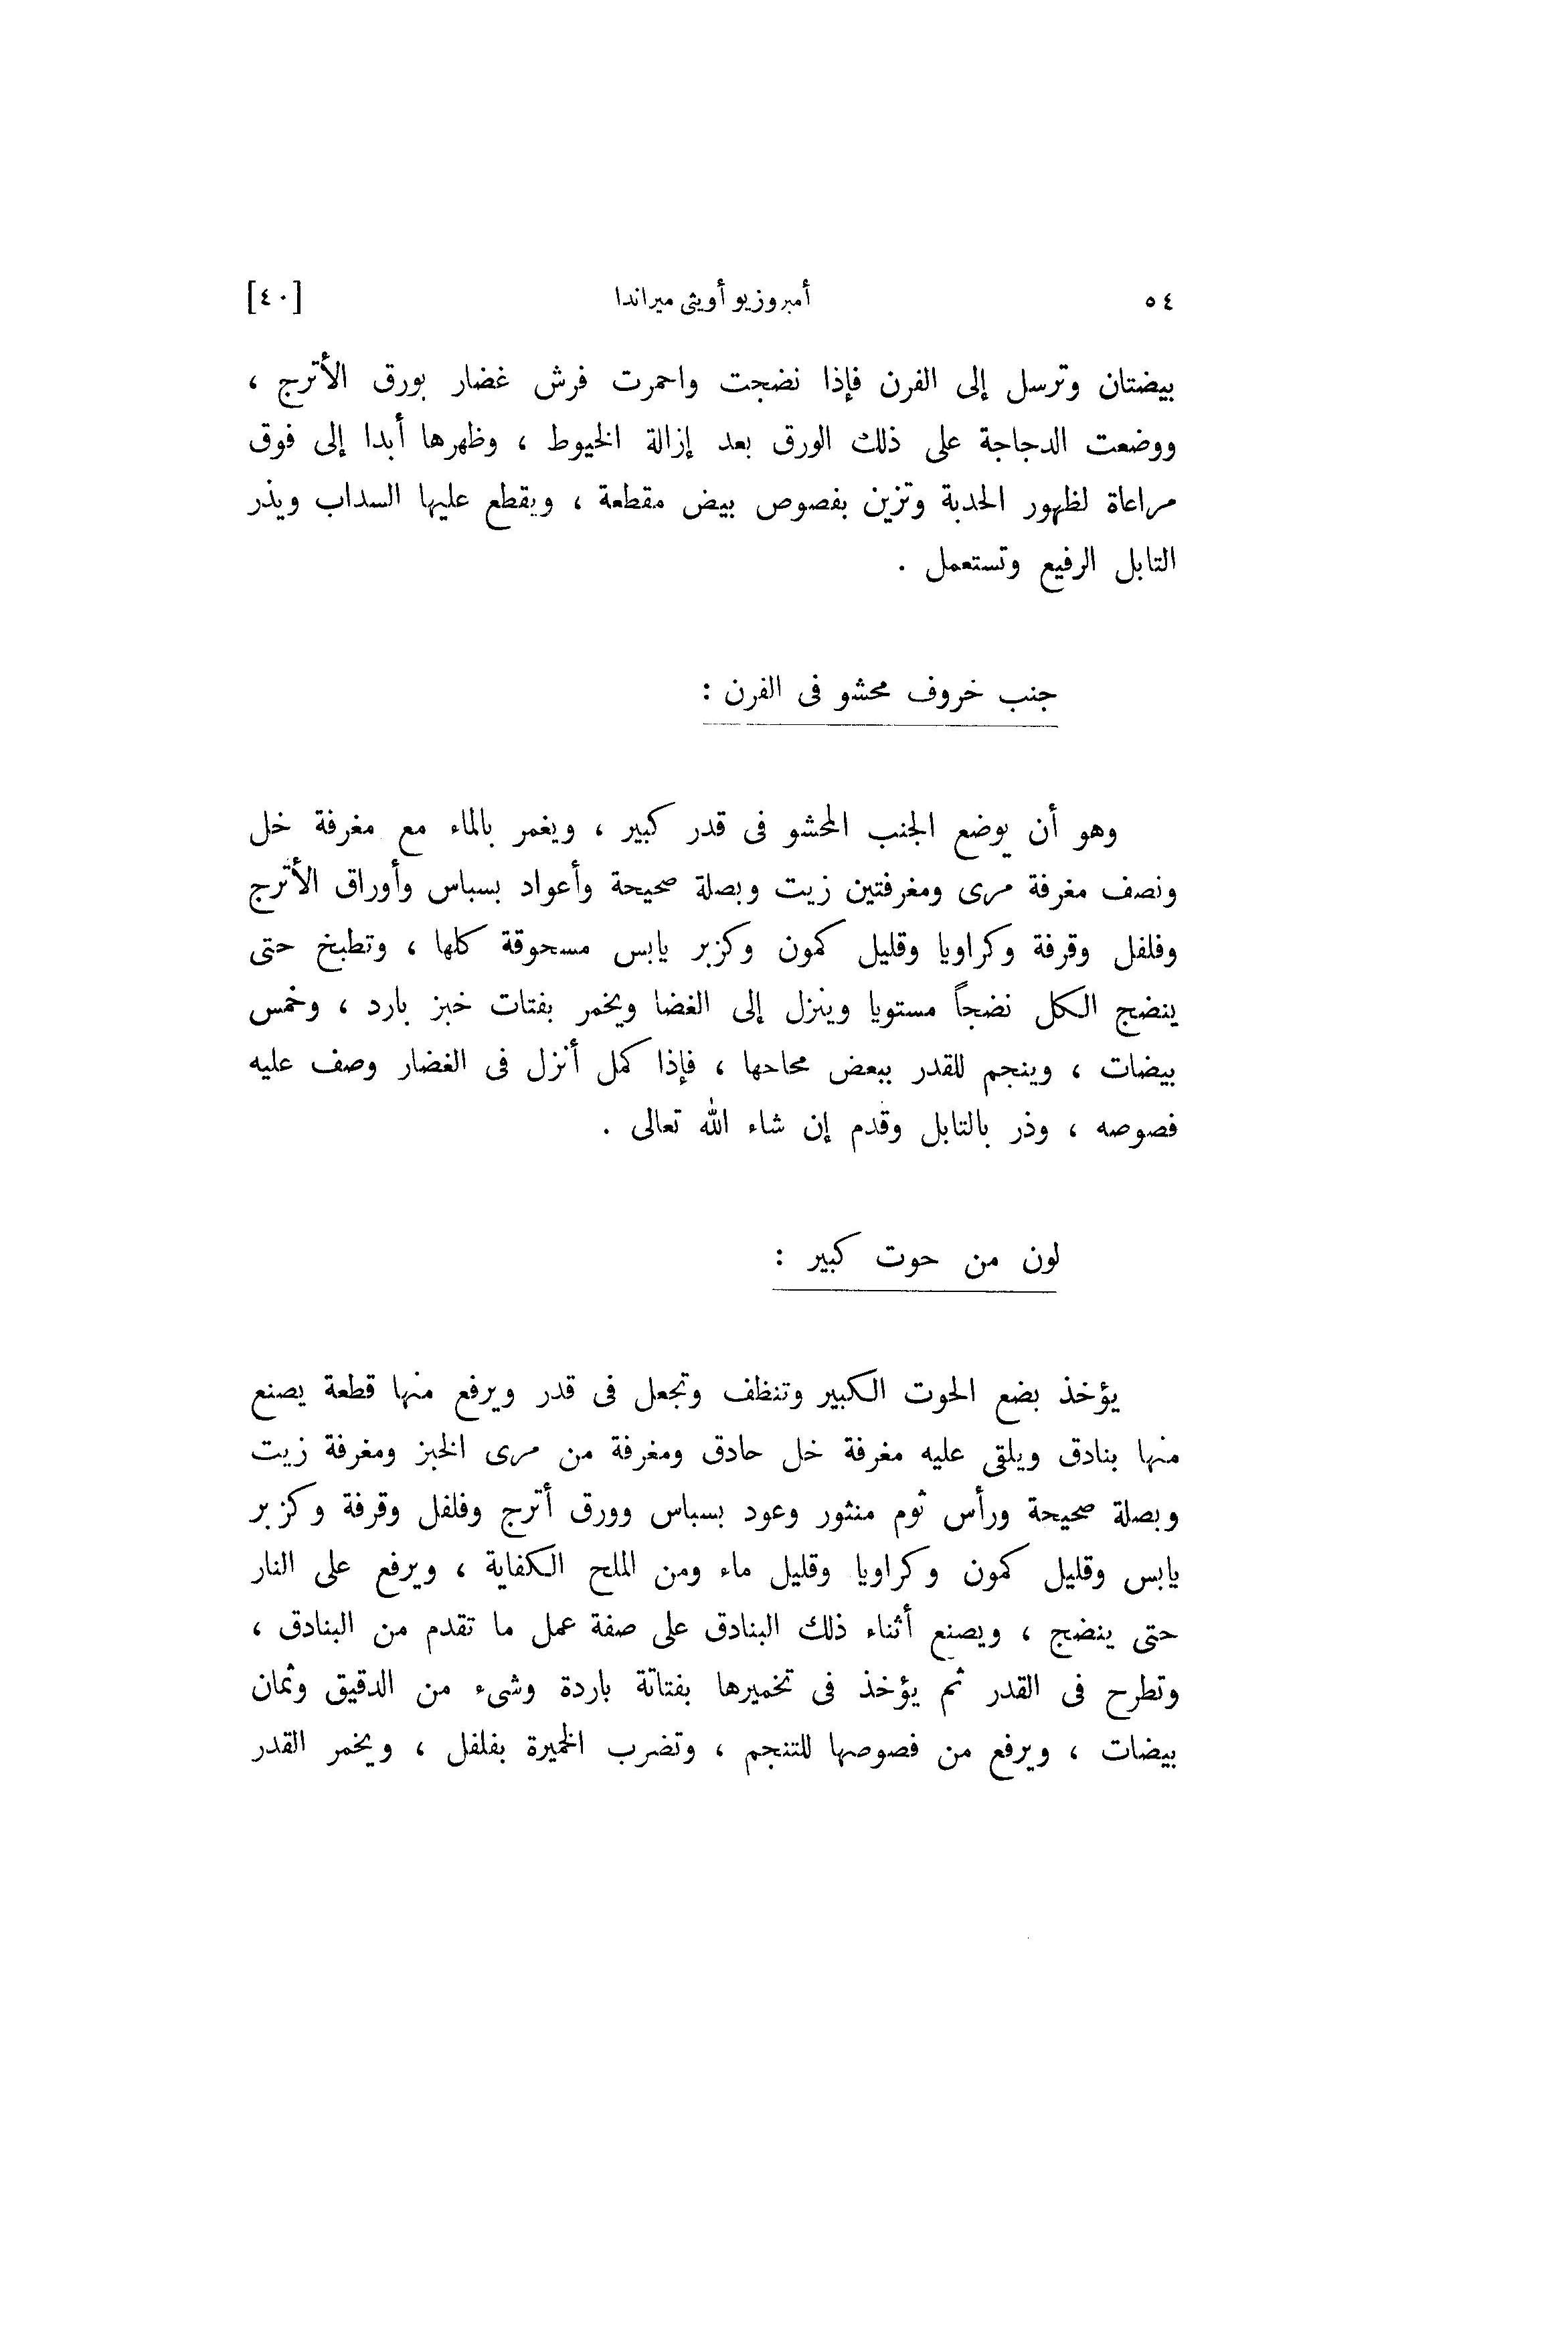 ٥٤ أمبروزيو أويثى ميراندا [٤٠]
بيضتان وترسل إلى الفرن فإذا نضجت واحمرت فرش غضار بورق الأترج ،
ووضعت الدجاجة على ذلك الورق بعد إزالة الخيوط ، وظهرها أبدا إلى فوق
مراعاة لظهور الحدبة وتزين بفصوص بيض مقطعة ، ويقطع عليها السداب ويذر
التابل الرفيع وتستعمل .
جنب خروف محشو فى الفرن :
وهو أن يوضع الجنب المحشو فى قدر كبير ، ويغمر بالماء مع مغرفة خل
ونصف مغرفة مرى ومغرفتين زيت وبصلة صحيحة وأعواد بسباس وأوراق الأترج
وفلفل وقرفة وكراويا وقليل كمون وكزبر يابس مسحوقة كلها ، وتطبخ حتى
ينضج الكل نضجاً مستويا وينزل إلى الغضا ويخمر بفتات خبز بارد ، وخمس
بيضات ، وينجم للقدر ببعض محاحها ، فإذا كمل أنزل فى الغضار وصف عليه
فصوصه ، وذر بالتابل وقدم إن شاء الله تعالى .
لون من حوت كبير :
يؤخذ بضع الحوت الكبير وتنظف وتجعل فى قدر ويرفع منها قطعة يصنع
منها بنادق ويلقى عليه مغرفة خل حادق ومغرفة من مرى الخبز ومغرفة زيت
وبصلة صحيحة ورأس ثوم منثور وعود بسباس وورق أترج وفلفل وقرفة وكزبر
يابس وقليل كمون وكراويا وقليل ماء ومن الملح الكفاية ، ويرفع على النار
حتى ينضج ، ويصنع أثناء ذلك البنادق على صفة عمل ما تقدم من البنادق ،
وتطرح فى القدر ثم يؤخذ فى تخميرها بفتاتة باردة وشىء من الدقيق وثمان
بيضات ، ويرفع من فصوصها للتنجم ، وتضرب الخميرة بفلفل ، ويخمر القدر